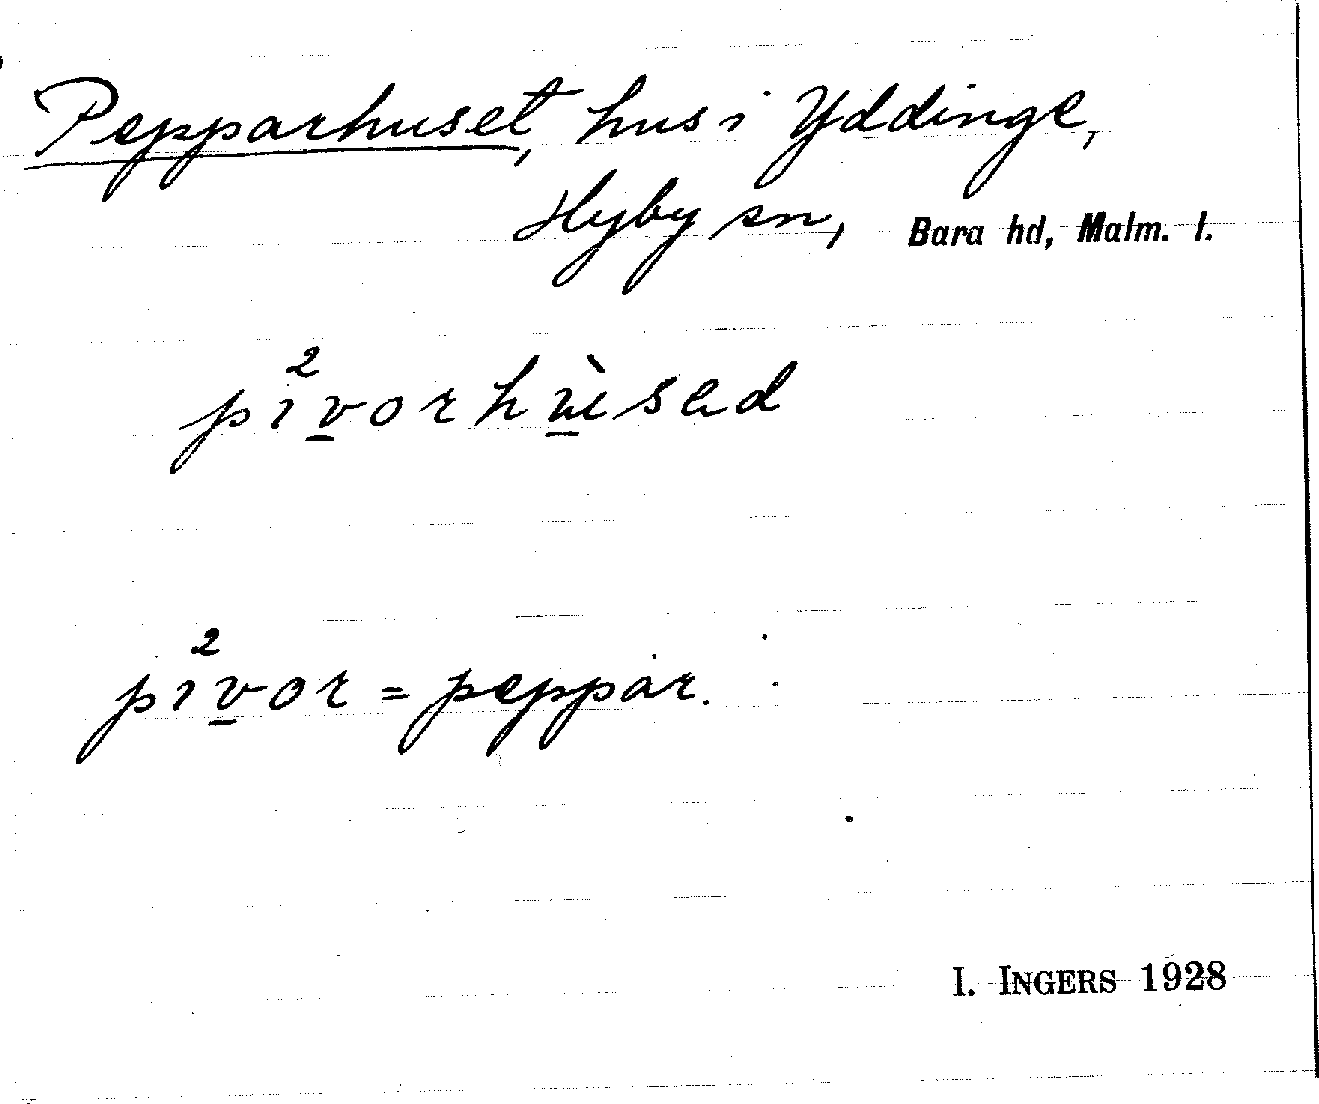 Pepparhuset, hus i Yddinge,
Hyby sn, Bara hd, Malm. l.
pı²v̲orhǜ̲sad
pı²v̲or = peppar.
I. INGERS 1928